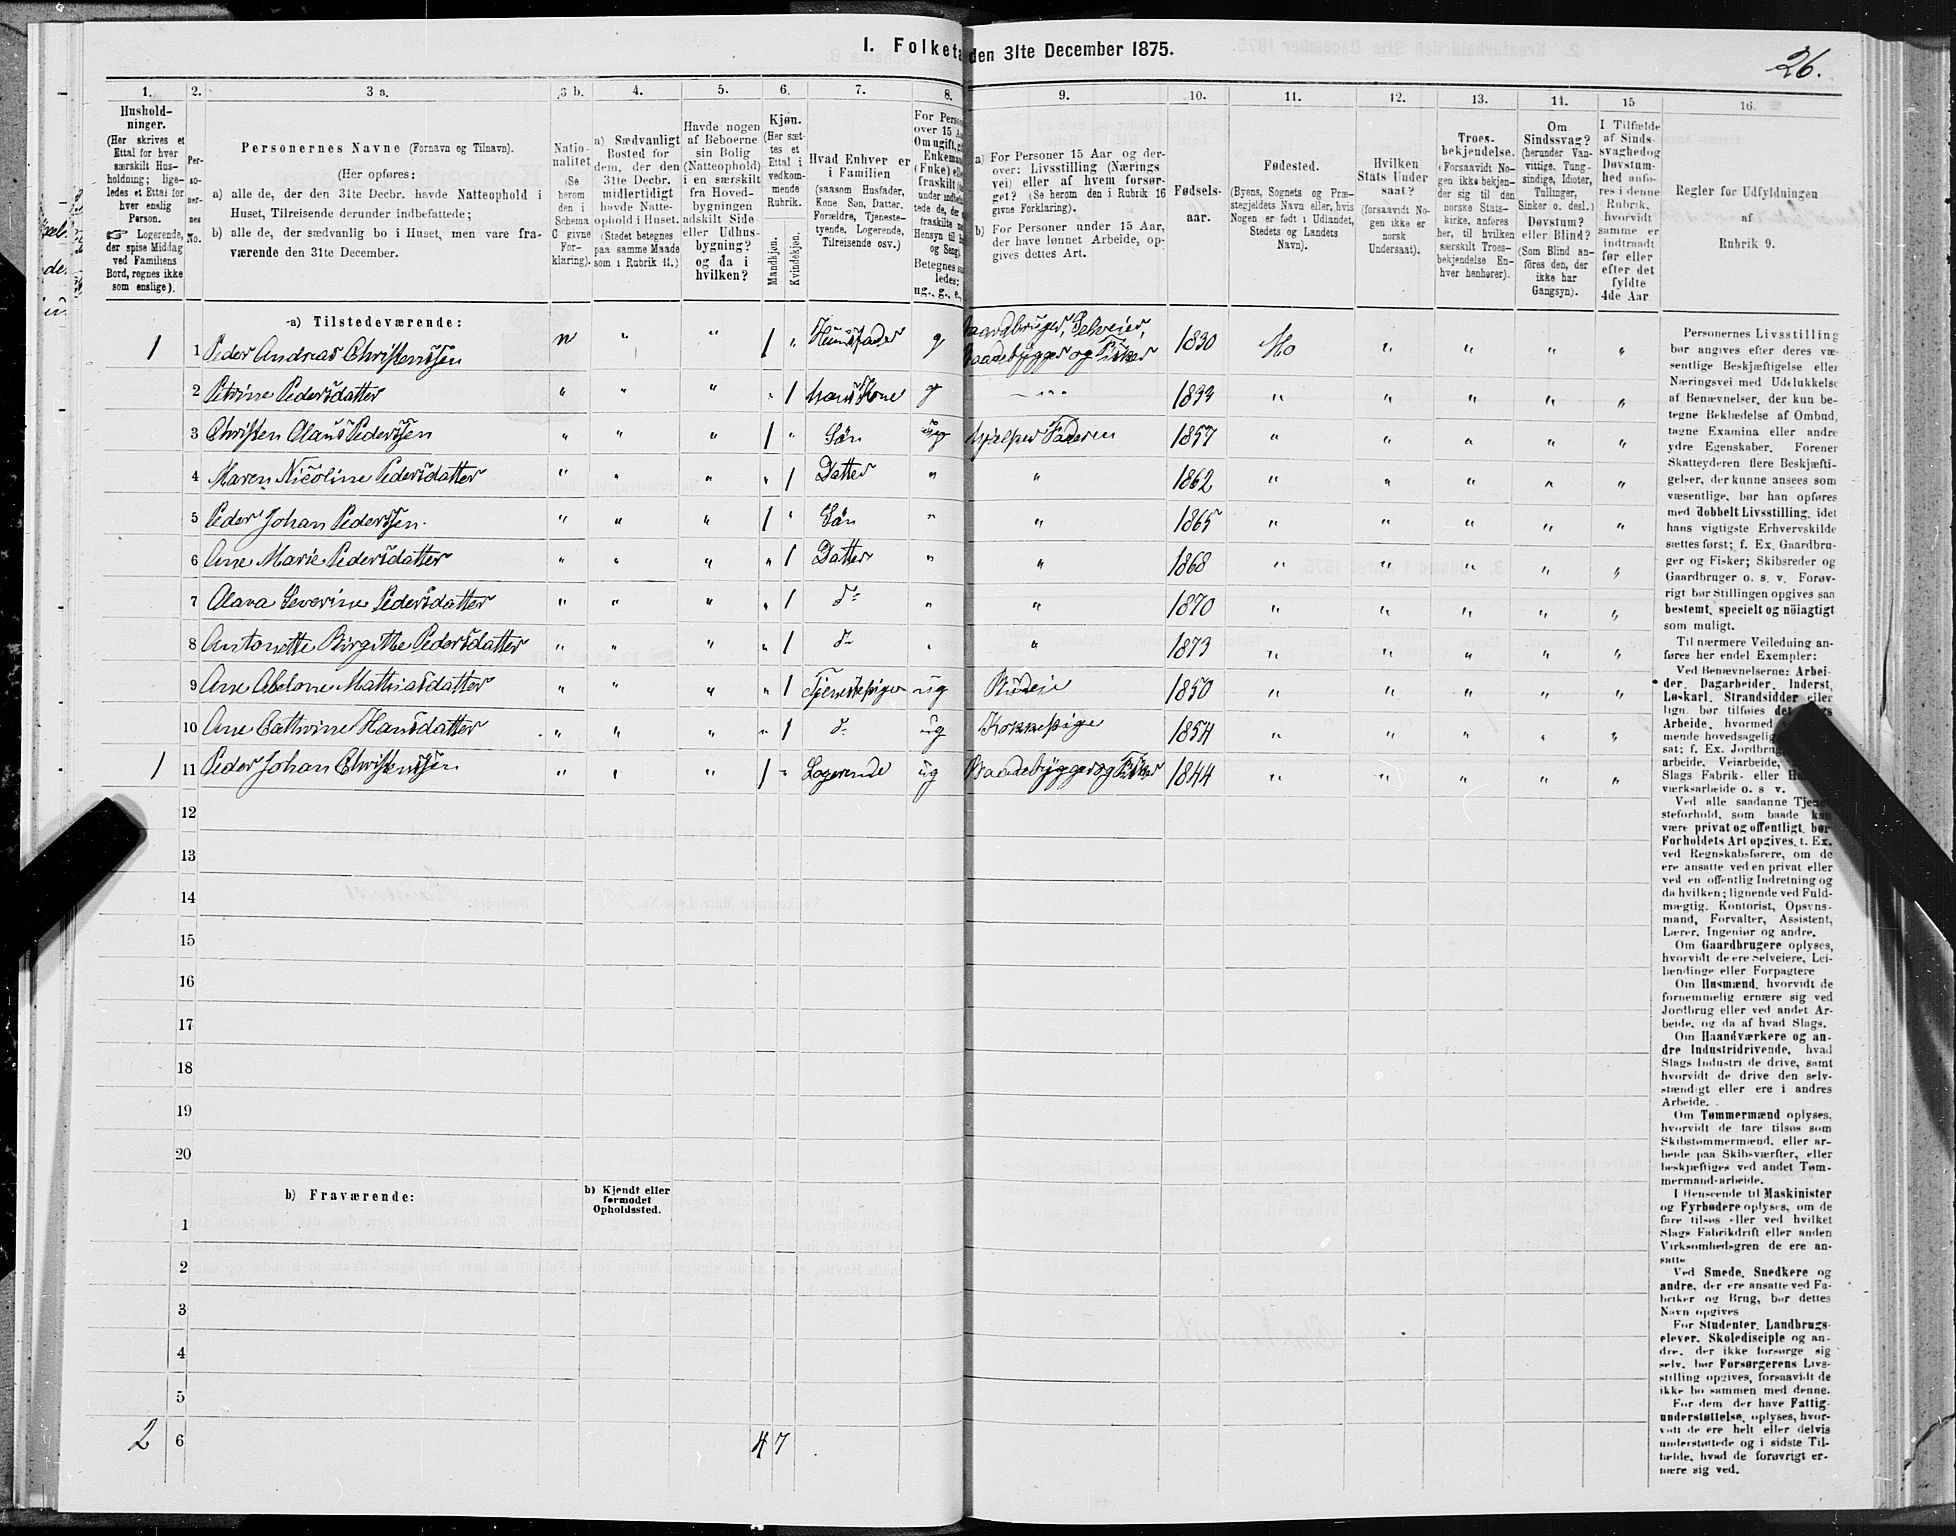 I. Folketæ den 31te December 1875.
26.
1. 2. 3 a. 3 b. 4. 5. 6. 7. 8. 9. 10. 11. 12. 13. 14. 15 16.
Hushold-
ninger.
(Her skrives et
Ettal for hver
særskilt Hus-
holdning; lige-
ledes et Ettal for
hver enslig
Person.
☞ Logerende,
der spise Middag
ved Familiens
Bord, regnes ikke
som enslige).
Per-
so-
ner-
nes
No.
Personernes Navne (Fornavn og Tilnavn).
(Her opføres:
a) alle de, der den 31te Decbr. havde Natteophold i
Huset, Tilreisende derunder indbefattede;
b) alle de, der sædvanlig bo i Huset, men vare fra-
værende den 31te December.
Natio-
nalitet
(Se
herom
den i
Schema
C givne
For-
klaring).
a) Sædvanligt
Bosted for
dem, der den
31te Decbr.
midlertidigt
havde Natte-
ophold i Huset.
(Stedet betegnes
paa samme Maade
som i Rubrik 11.)
Havde nogen
af Beboerne
sin Bolig
(Natteophold)
i en særskilt
fra Hoved-
bygningen
adskilt Side
eller Udhus-
bygning?
og da i
hvilken?
Kjøn.
(Her sæt-
tes et
Ettal i
vedkom-
mende
Rubrik.
Mandkjøn.
Kvindekjøn.
Hvad Enhver er
i Familien
(saasom Husfader,
Kone Søn, Datter.
Forældre, Tjeneste-
tyende, Logerende,
Tilreisende osv.)
For Perso
over 15 A
Om ugift, g
Enkeman
(Enke) elle
fraskilt
under
tede de, der
fraskilte
Hensyn til
og Seng).
Betegnes s
ledes:
ug., g., e.,
a) For Personer 15 Aar og der-
over: Livsstilling (Nærings
vei) eller af hvem forsør-
get? (Se herom den i Rubrik 16
givne Forklaring).
b) For Personer under 15 Aar,
der have lønnet Arbeide, op-
gives dettes Art.
Fødsels-
aar.
Fødested.
(Byens, Sognets og Præ-
stegjeldets Navn eller, hvis
Nogen er født i Udlandet,
Stedets og Landets
Navn).
Hvilken
Stats Under
saat?
(forsaavidt No-
gen ikke er
norsk
Undersaat).
Troes-
bekjendelse.
(Forsaavidt No
gen ikke bekjen-
der sig til den
norske Stats-
kirke, anføres
her, til hvilken
særskilt Troes-
bekjendelse En-
hver henhører).
Om
Sindssvag?
(herunder Van-
vittige, Tung-
sindige, Idioter,
Tullinger,
Sinker o. desl.)
Døvstum?
eller Blind?
(Som Blind an-
føres den, der
ikke har
Gangsyn).
I Tilfælde
af Sinds-
svaghed og
Døvstum-
hed anfø-
res i denne
Rubrik,
hvorvidt
samme er
indtraadt
før eller
efter det
fyldte
4de Aar.
Regler før Udfyldningen
af
Rubrik 9.
a) Tilstedeværende:
1 1 Peder Andreas Christenssen n " " 1 " Huusfader g Gaardbruger, Selveier, Baadebygger og Fisker 1830 Mo " " " "
2 Petrine Pedersdatter " " " " 1 hans Kone g – " – 1833 " " " " "
3 Christen Claus Pederssen " " " 1 " Søn ug hjælper Faderen 1857 " " " " "
4 Maren Nicoline Pedersdatter " " " " 1 Datter " " 1862 " " " " "
5 Peder Johan Pederssen. " " " 1 " Søn " " 1865 " " " " "
6 Ane Marie Pedersdatter " " " " 1 Datter " " 1868 " " " " "
7 Olava Severine Pedersdatter " " " " 1 do " " 1870 " " " " "
8 Antonette Birgitte Pedersdatter " " " " 1 do " " 1873 " " " " "
9 Ane Abelone Mathiasdatter " " " " 1 Tjenestepige ug Budeie 1850 " " " " "
10 Ane Cathrine Hansdatter " " " " 1 do ug Kokkepige 1854 " " " " "
1 11 Peder Johan Christenssen " " " 1 " Logerende ug Baadebygger og Fisker 1844 " " " " "
12
13
14
15
16
17
18
19
20
b) Fraværende:
b) Kjendt eller
formodet
Opholdssted.
1
2
3
4
5
2 6 4 7
Personernes Livsstilling
bør angives efter deres væ-
sentlige Beskjæftigelse eller
Næringsvei med Udelukkelse
af Benævnelser, der kun be-
tegne Beklædelse af Ombud,
tagne Examina eller andre
ydre Egenskaber. Forener
Skatteyderen flere Beskjæfti-
gelser, der kunne ansees som
væsentlige, bør han opføres
med dobbelt Livsstilling, idet
hans vigtigste Erhvervskilde
sættes først; f. Ex. Gaardbru-
ger og Fisker; Skibsreder og
Gaardbruger o. s. v. Forøv-
rigt bør Stillingen opgives saa
bestemt, specielt og nöiagtigt
som muligt.
Til nærmere Veiledning an-
føres her endel Exempler:
Ved Benævnelserne: Arbei-
der, Dagarbeider, Inderst,
Løskarl, Strandsidder eller
lign. bør tilføies det
Arbeide, hvormed
mende hovedsagelig
sat: f. Ex. Jordbrug
arbeide, Veiarbeide,
Slags Fabrik- eller
værksarbeide o. s. v.
Ved alle saadanne Tje
steforhold, som baade kan
være privat og offentligt, bør
Forholdets Art opgives, t. Ex.
ved Regnskabsførere, om de
ere ansatte ved en privat eller
ved en offentlig Indretning og
da hvilken; lignende ved Fuld-
mægtig, Kontorist, Opsyns-
mand, Forvalter, Assistent,
Lærer, Ingeniør og andre.
Om Gaardbrugere oplyses,
hvorvidt de ere Selveiere, Lei-
lændinge eller Forpagtere
Om Husmænd, hvorvidt de
fornemmelig ernære sig ved
Jordbrug eller ved andet Ar-
beide, og da af hvad Slags.
Om Haandværkere og an-
dre Industridrivende, hvad
Slags Industri de drive, samt
hvorvidt de drive den selv-
stændigt eller ere i andres
Arbeide.
Om Tømmermænd oplyses,
hvorvidt de fare tilsøs som
Skibstømmermænd, eller ar-
beide paa Skibsværfter, eller
beskjæftiges ved andet Tøm-
mermand-arbeide.
I Henseende til Maskinister
og Fyrbødere oplyses, om de
fare tilsøs eller ved hvilket
Slags Fabrikdrift eller anden
Virksomhedsgren de ere an-
satte
Ved Smede, Snedkere og
andre, der ere ansatte ved Fa-
briker og Brug, bør dettes
Navn opgives
For Studenter, Landbrugs-
elever, Skoledisciple og an-
dre, der ikke forsørge sig
selv, bør Forsørgerens Livs-
stilling opgives, forsaavidt de
ikke bo sammen med denne.
For dem, der have Fattig-
understøttelse, oplyses, hvor-
vidt de ere helt eller delvis
understøttede og i sidste Til-
fælde, hvad de forøvrigt er-
nære sig ved.